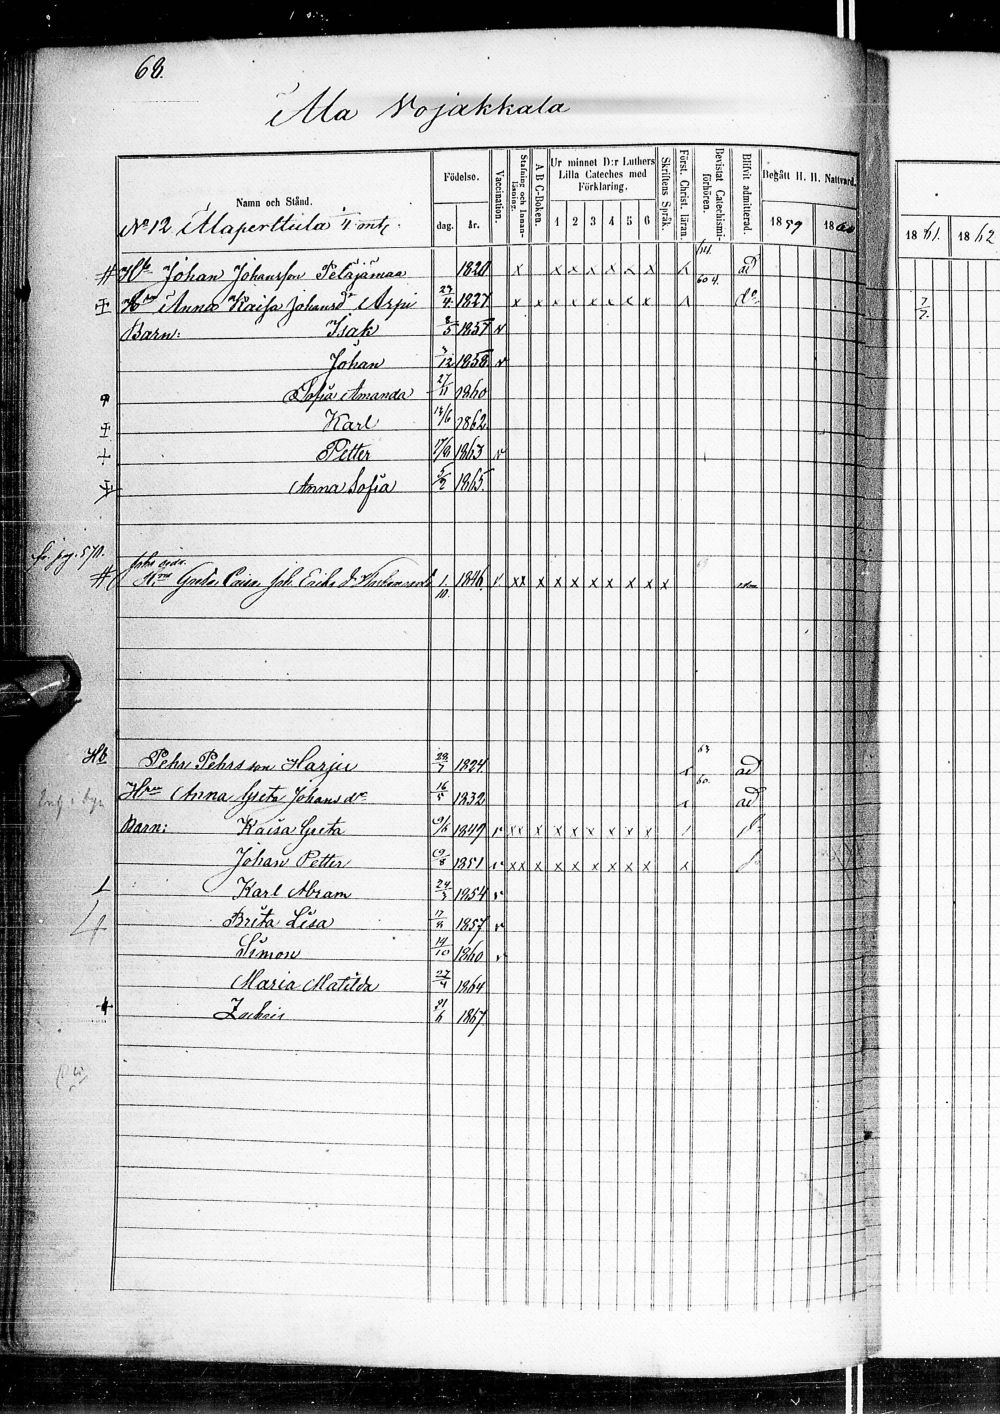 68.
Ala Vojakkala
Namn och Stånd.
Födelse.
dag. år.
Vaccination.
Stafning och Innanläsning.
A B C-Boken.
Ur minnet D:r Luthers Lilla Cateches med Förklaring.
1 2 3 4 5 6
Skriftens Språk.
Först. Christ. läran.
Bevistat Catechismiförhören.
Blifvit admitterad.
Begått H. H. Nattvard.
1859 1860
1861. 1862
No 12 Alaperttula mtl.
# Hb Johan Johansson Pelajamaa 1820 x x x x x x x x ad
Hru Anna Kaisa Johansdr Arpi 23/4 1827 x x x x x x x x do 7/7.
Barn: Isak 3/5 1857 v
Johan 3/12 1858 v
Sofia Amanda 27/11 1860
Karl 14/6 1862
Petter 17/9 1863 v
Anna Sofia 5/2 1865.
fr. pag. 570.
# Hru Greta Caisa Joh. Eriksdr 1/10. 1846. v xx x x x x x x x x
Hb Pehr Pehrsson Harju 1824. x ad
63
60.
Hru Anna Greta Johansdr 16/5 1832 ad
Barn: Kaisa Greta 9/6 1849 v xx x x x x x x x
Johan Petter 9/8 1851 v xx x x x x x x x x
Karl Abram 24/3 1854 v
Brita Lisa 17/9 1857 v
Simon 19/10 1860 v
Maria Matilda 27/4 1864
Zachris 21/6 1867